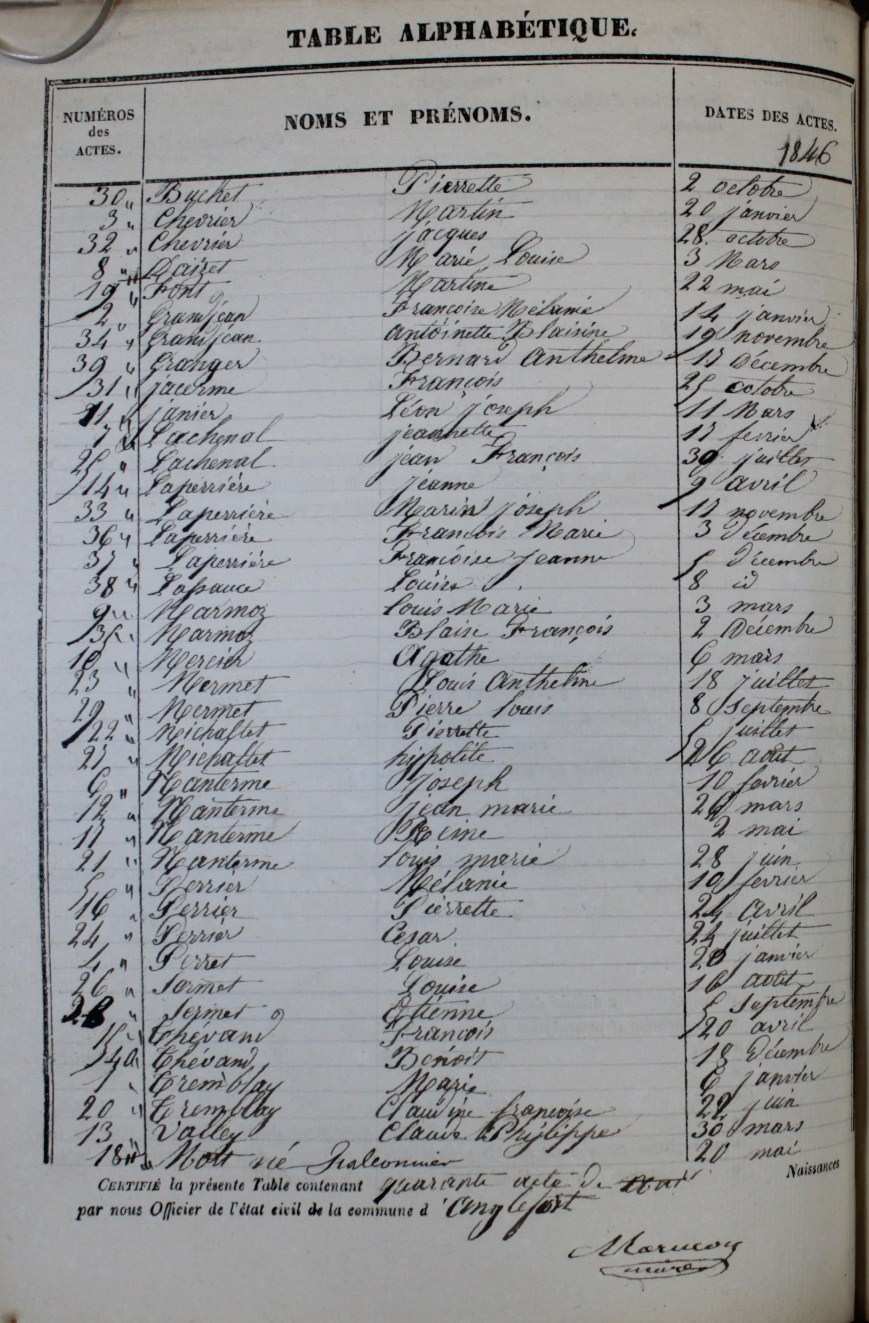 TABLE ALPHABÉTIQUE.
NUMÉROS des ACTES. NOMS ET PRÉNOMS. DATES DES ACTES.
1846
30 " Buchet Pierrette 2 octobre
3 " Chevrier Martin 20 janvier
32 " Chevrier jacques 28 octobre
8 " Marie Louise 3 Mars
19 " Font Martine 22 mai
2 " Grandjean Françoise Mélanie 14 janvier
34 " Grandjean antoinette Blaisine 19 novembre
39 " Granger Bernard Anthelme 17 Décembre
31 " jacerme François 25 octobre
11 " janier Léon joseph 11 Mars
7 " Lachenal jeannette 17 fevrier
25 " Lachenal jean François 30 juillet
14 " Laperrière jeanne 9 avril
33 " Laperrière Marin joseph 17 novembre
36 " Laperrière François Marie 3 décembre
37 " Laperrière Françoise jeanne 5 décembre
38 " Lassauce Louise 8 id
9 " Marmoz louis Marie 3 mars
35 " Marmoz Blaise François 2 Décembre
10 " Mercier Agathe 6 mars
23 " Mermet Louis Anthelme 18 juillet
29 " Mermet Pierre louis 8 Septembre
22 " Michallet Pierrette 5 juillet
27 " Michallet hypolite 26 août
6 " Nanterme joseph 10 fevrier
12 " Nanterme jean marie 29 mars
17 " Nanterme Reine 2 mai
21 " Nanterme louis marie 28 juin
5 " Perrier Mélanie 10 fevrier
16 " Perrier Pierrette 24 avril
24 " Perrier Cesar 24 juillet
4 " Perret Louise 28 janvier
26 " Sermet Louise 16 août
28 " Sermet Etienne 5 Septembre
15 " Thévand François 20 avril
40 " Thévand Benoit 18 Décembre
1 " Tremblay Marie 6 janvier
20 " Tremblay Claudine françoise 22 juin
13 " Valley Claude Philippe 30 mars
18 " Mort né 20 mai
Naissances
CERTIFIÉ la présente Table contenant quarante acte de
par nous Officier de l'état civil de la commune d'Anglefort
maire